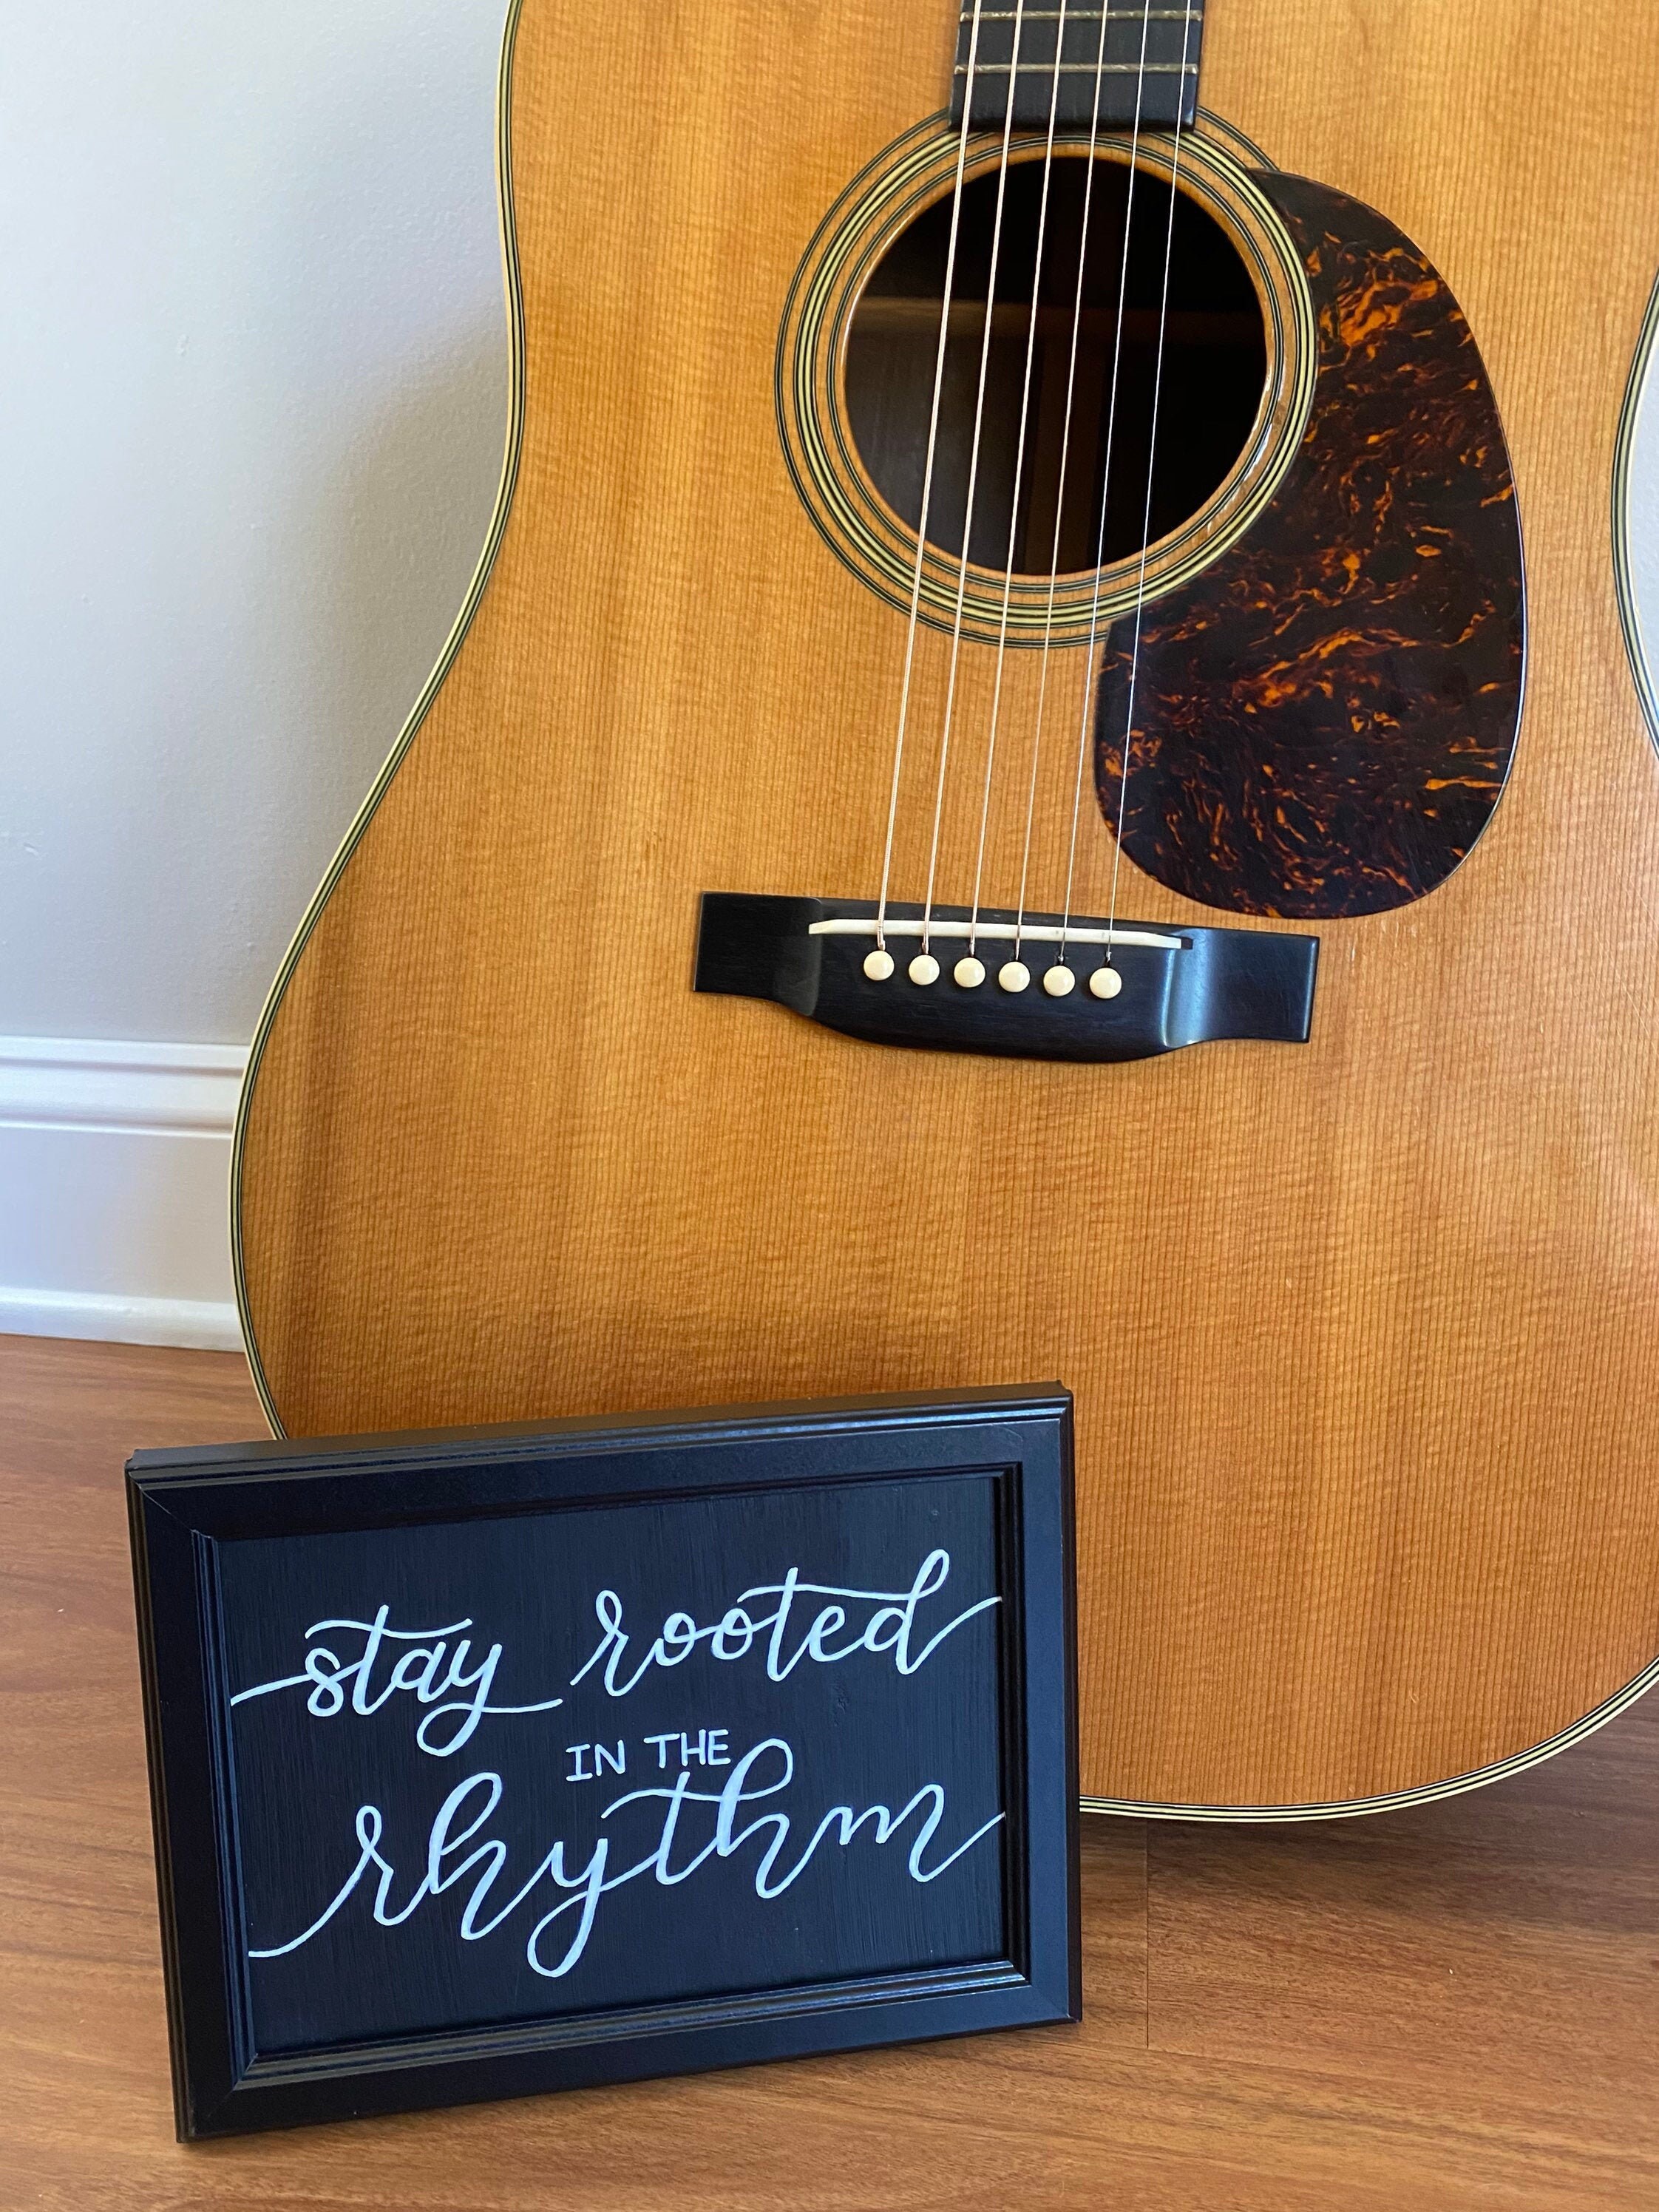 stay rooted
IN THE
rhythm